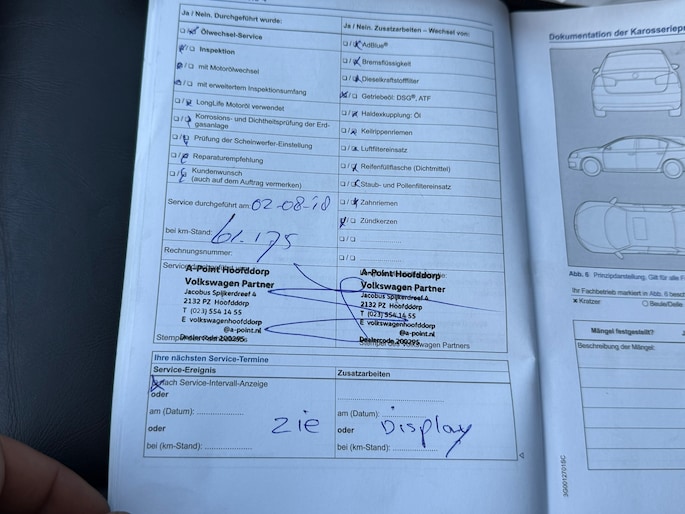 Ja / Nein. Durchgeführt wurde:
Ölwechsel-Service
Inspektion
mit Motorölwechsel
mit erweitertem Inspektionsumfang
LongLife Motoröl verwendet
Korrosions- und Dichtheitsprüfung der Erd-
gasanlage
Prüfung der Scheinwerfer-Einstellung
Reparaturempfehlung
Kundenwunsch
(auch auf dem Auftrag vermerken)
Service durchgeführt am: 02-08-18
bei km-Stand: 61.175
Rechnungsnummer:
Ja / Nein. Zusatzarbeiten – Wechsel von:
AdBlue®
Bremsflüssigkeit
Dieselkraftstofffilter
Getriebeöl: DSG®, ATF
Haldexkupplung: Öl
Keilrippenriemen
Luftfiltereinsatz
Reifenfüllflasche (Dichtmittel)
Staub- und Pollenfiltereinsatz
Zahnriemen
Zündkerzen
A-Point Hoofddorp
Volkswagen Partner
Jacobus Spijkerdreef 4
2132 PZ Hoofddorp
T (023) 554 14 55
E volkswagenhoofddorp
@a-point.nl
Dealercode 200295
A-Point Hoofddorp
Volkswagen Partner
Jacobus Spijkerdreef 4
2132 PZ Hoofddorp
T (023) 554 14 55
E volkswagenhoofddorp
@a-point.nl
Dealercode 200295
Stempel des Volkswagen Partners
Ihre nächsten Service-Termine
Service-Ereignis
nach Service-Intervall-Anzeige
oder
am (Datum):
oder
bei (km-Stand):
Zusatzarbeiten
am (Datum):
oder
bei (km-Stand):
zie Display
Dokumentation der Karosseriepr
Abb. 6 Prinzipdarstellung, Gilt für alle F
Ihr Fachbetrieb markiert in Abb. 6 besch
x Kratzer
Beule/Delle
Mängel festgestellt?
Beschreibung der Mängel:
3G0012701SC